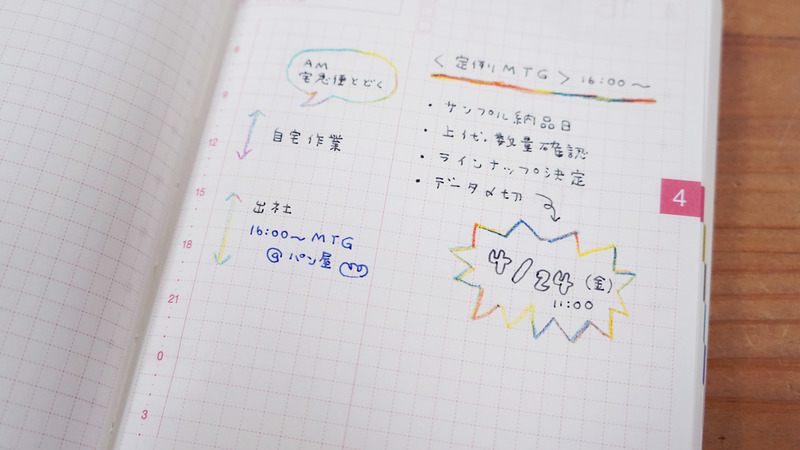 AM
宅急便とどく
9
12
自宅作業
15
出社
16:00〜MTG
@パン屋
18
21
0
3
〈定例MTG〉16:00〜
・サンプル納品日
・上代・数量確認
・ラインナップ決定
・データ〆切
4/24(金)
11:00
4